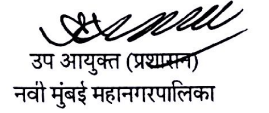 उप आयुक्त (प्रशासन)
नवी मुंबई महानगरपालिका